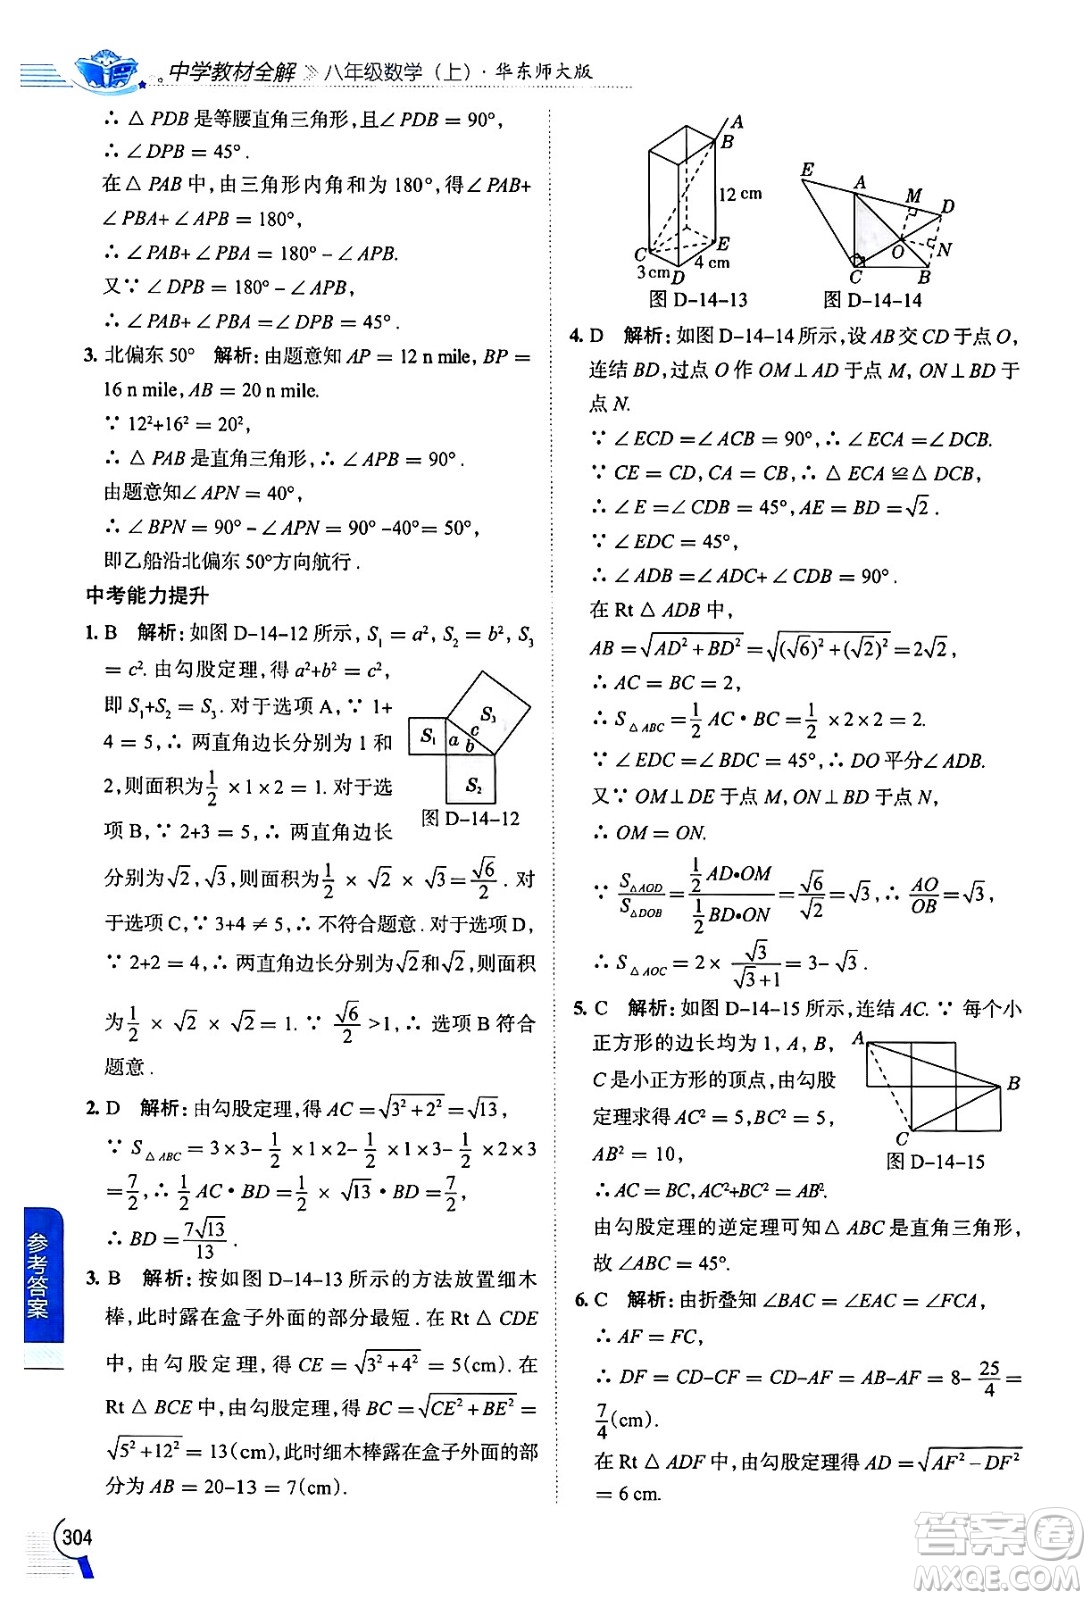 中学教材全解 八年级数学（上）·华东师大版
∴ △ PDB 是等腰直角三角形,且∠PDB = 90°,
∴ ∠DPB = 45°.
在 △ PAB 中,由三角形内角和为 180°,得∠PAB+
∠PBA+∠APB = 180°,
∴ ∠PAB+∠PBA = 180°-∠APB.
又∵ ∠DPB = 180°-∠APB,
∴ ∠PAB+∠PBA = ∠DPB = 45°.
3. 北偏东 50° 解析:由题意知 AP = 12 n mile, BP =
16 n mile, AB = 20 n mile.
∵ 12²+16² = 20²,
∴ △ PAB 是直角三角形,∴ ∠APB = 90°.
由题意知∠APN = 40°,
∴ ∠BPN = 90°-∠APN = 90°-40°= 50°,
即乙船沿北偏东 50°方向航行.
中考能力提升
1. B 解析:如图 D-14-12 所示, S₁ = a², S₂ = b², S₃
= c². 由勾股定理,得 a²+b² = c²,
即 S₁+S₂ = S₃. 对于选项 A,∵ 1+
4 = 5,∴ 两直角边长分别为 1 和
2,则面积为1/2 ×1×2 = 1. 对于选
项 B,∵ 2+3 = 5,∴ 两直角边长
S₁
S₂
S₃
a
b
c
图 D-14-12
分别为√2,√3,则面积为1/2 × √2 × √3 = √6/2. 对
于选项 C,∵ 3+4 ≠ 5,∴ 不符合题意. 对于选项 D,
∵ 2+2 = 4,∴ 两直角边长分别为√2和√2,则面积
为1/2 × √2 × √2 = 1. ∵ √6/2 >1,∴ 选项 B 符合
题意.
2. D 解析:由勾股定理,得 AC = √(3²+2²) = √13,
∵ S△ABC = 3×3-1/2 ×1×2-1/2 ×1×3-1/2 ×2×3
= 7/2,∴ 1/2 AC·BD = 1/2 × √13·BD = 7/2,
∴ BD = 7√13/13.
3. B 解析:按如图 D-14-13 所示的方法放置细木
棒,此时露在盒子外面的部分最短. 在 Rt △ CDE
中,由勾股定理,得 CE = √(3²+4²) = 5(cm). 在
Rt △ BCE 中,由勾股定理,得 BC = √(CE²+BE²) =
√(5²+12²) = 13(cm),此时细木棒露在盒子外面的部
分为 AB = 20-13 = 7(cm).
A
B
12 cm
C
E
3 cm
D
4 cm
图 D-14-13
E
A
M
D
O
N
C
B
图 D-14-14
4. D 解析:如图 D-14-14 所示,设 AB 交 CD 于点 O,
连结 BD,过点 O 作 OM⊥AD 于点 M, ON⊥BD 于
点 N.
∵ ∠ECD = ∠ACB = 90°,∴ ∠ECA =∠DCB.
∵ CE = CD, CA = CB,∴ △ ECA ≌△ DCB,
∴ ∠E =∠CDB = 45°, AE = BD =√2.
∵ ∠EDC = 45°,
∴ ∠ADB = ∠ADC+∠CDB = 90°.
在 Rt △ ADB 中,
AB = √(AD²+BD²) = √((√6)²+(√2)²) =2√2,
∴ AC = BC = 2,
∴ S△ABC = 1/2 AC·BC = 1/2 ×2×2 = 2.
∵ ∠EDC = ∠BDC = 45°,∴ DO 平分∠ADB.
又∵ OM⊥DE 于点 M, ON⊥BD 于点 N,
∴ OM = ON.
∵ S△AOD/S△DOB = (1/2 AD·OM)/(1/2 BD·ON) = √6/√2 = √3,∴ AO/OB = √3,
∴ S△AOC = 2× √3/(√3+1) = 3-√3.
5. C 解析:如图 D-14-15 所示,连结 AC. ∵ 每个小
正方形的边长均为 1, A, B,
C 是小正方形的顶点,由勾股
定理求得 AC² = 5, BC² = 5,
AB² = 10,
A
B
C
图 D-14-15
∴AC = BC, AC²+BC² = AB².
由勾股定理的逆定理可知 △ ABC 是直角三角形,
故 ∠ABC = 45°.
6. C 解析:由折叠知 ∠BAC = ∠EAC = ∠FCA,
∴ AF = FC,
∴ DF = CD-CF = CD-AF = AB-AF = 8-25/4 =
7/4(cm).
在 Rt △ ADF 中,由勾股定理得 AD = √(AF²-DF²)
= 6 cm.
参考答案
304
答案圈
MXQE.COM